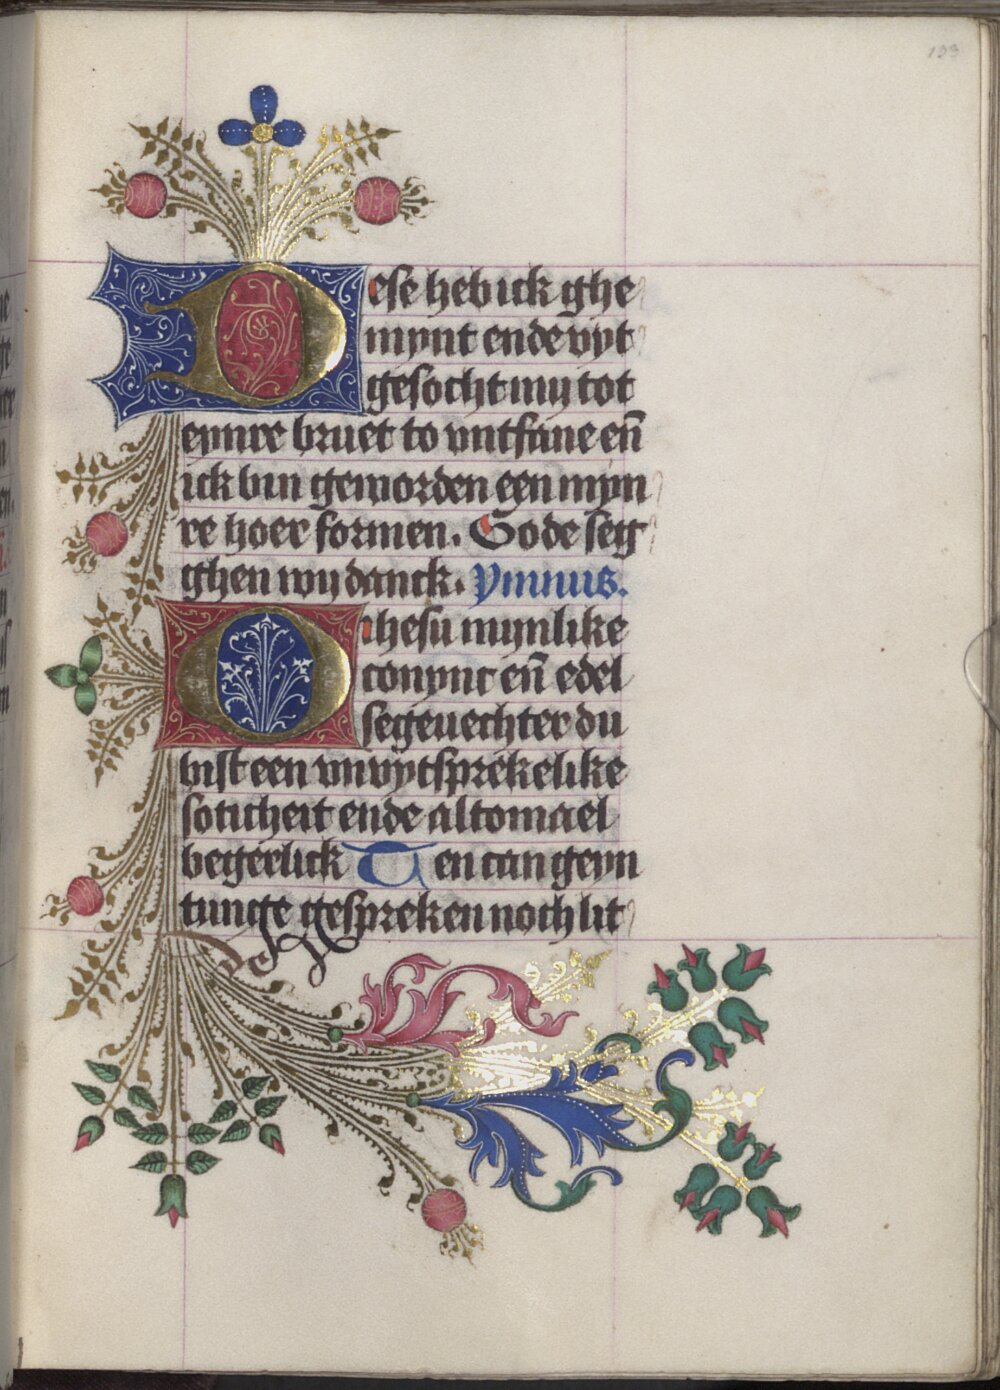 133
Dese heb ick ghe
mynt ende vyt
gesocht my tot
eynre bruet to untfane en̄
ick bin geworden een myn
re hoer formen. Gode seg
ghen wy danck. ymnus.
O ihesu mynlike
conync en̄ edel
segeuechter du
bist een unvytsprekelike
soticheit ende altomael
begerlick Ten can geyn
tunge gespreken noch lit